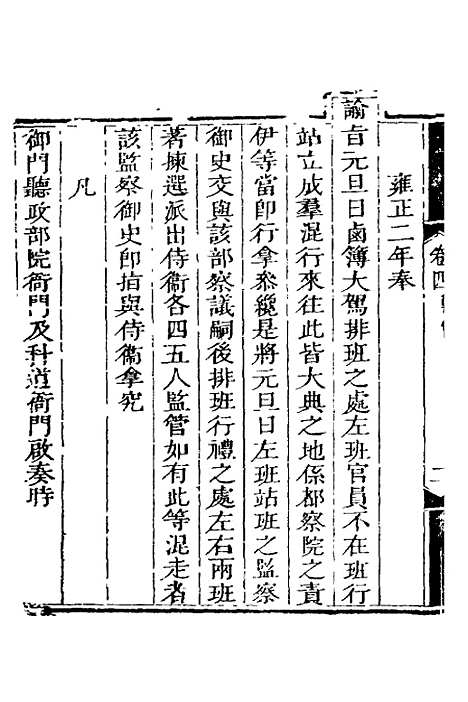 雍正二年奉
諭旨元旦日鹵簿大駕排班之處左班官員不在班行
站立成羣混行來往此皆大典之地係都察院之責
伊等當即行拿叅纔是將元旦日左班站班之監察
御史交與該部察議嗣後排班行禮之處左右兩班
著揀選派出侍衞各四五人監管如有此等混走者
該監察御史即指與侍衞拿究
凡
御門聽政部院衙門及科道衙門啟奏時
卷四